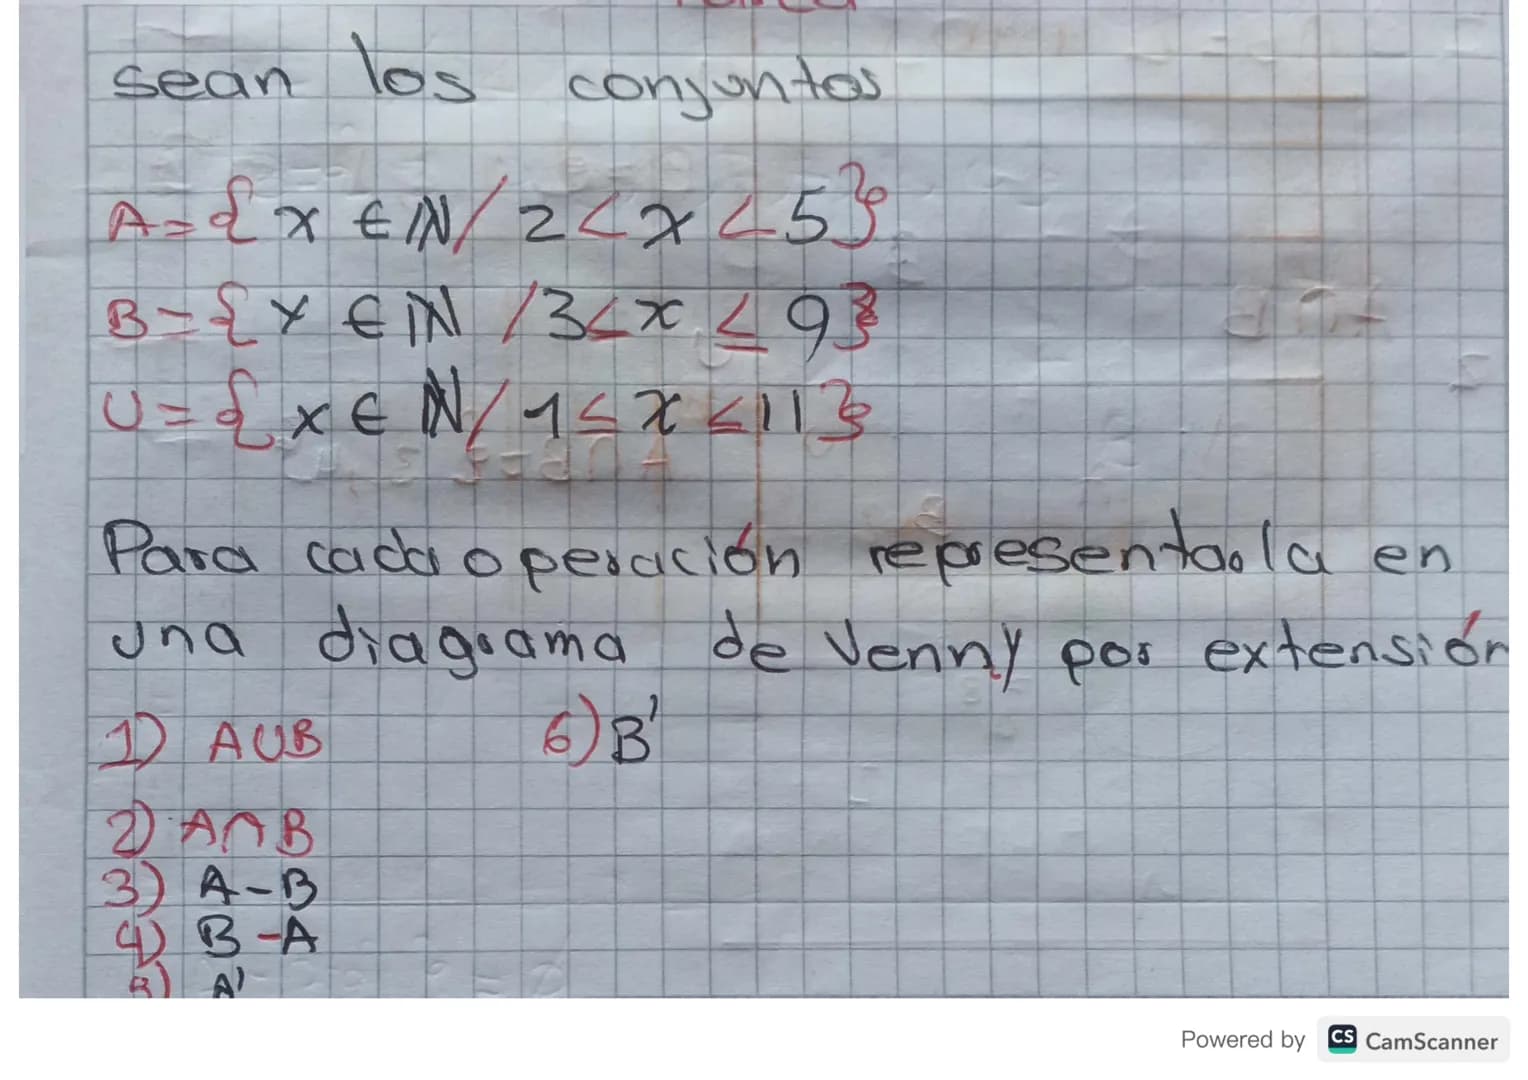 sean los conjuntos
A={x ∈ ℕ/ 2<x<5}
B={x ∈ ℕ /3<x≤9}
U={x ∈ ℕ/ 1≤x≤11}
Para cada operación representarla en
una diagrama de Venn y por extensión
1) A∪B 6) B'
2) A∩B
3) A-B
4) B-A
A'
Powered by CS CamScanner